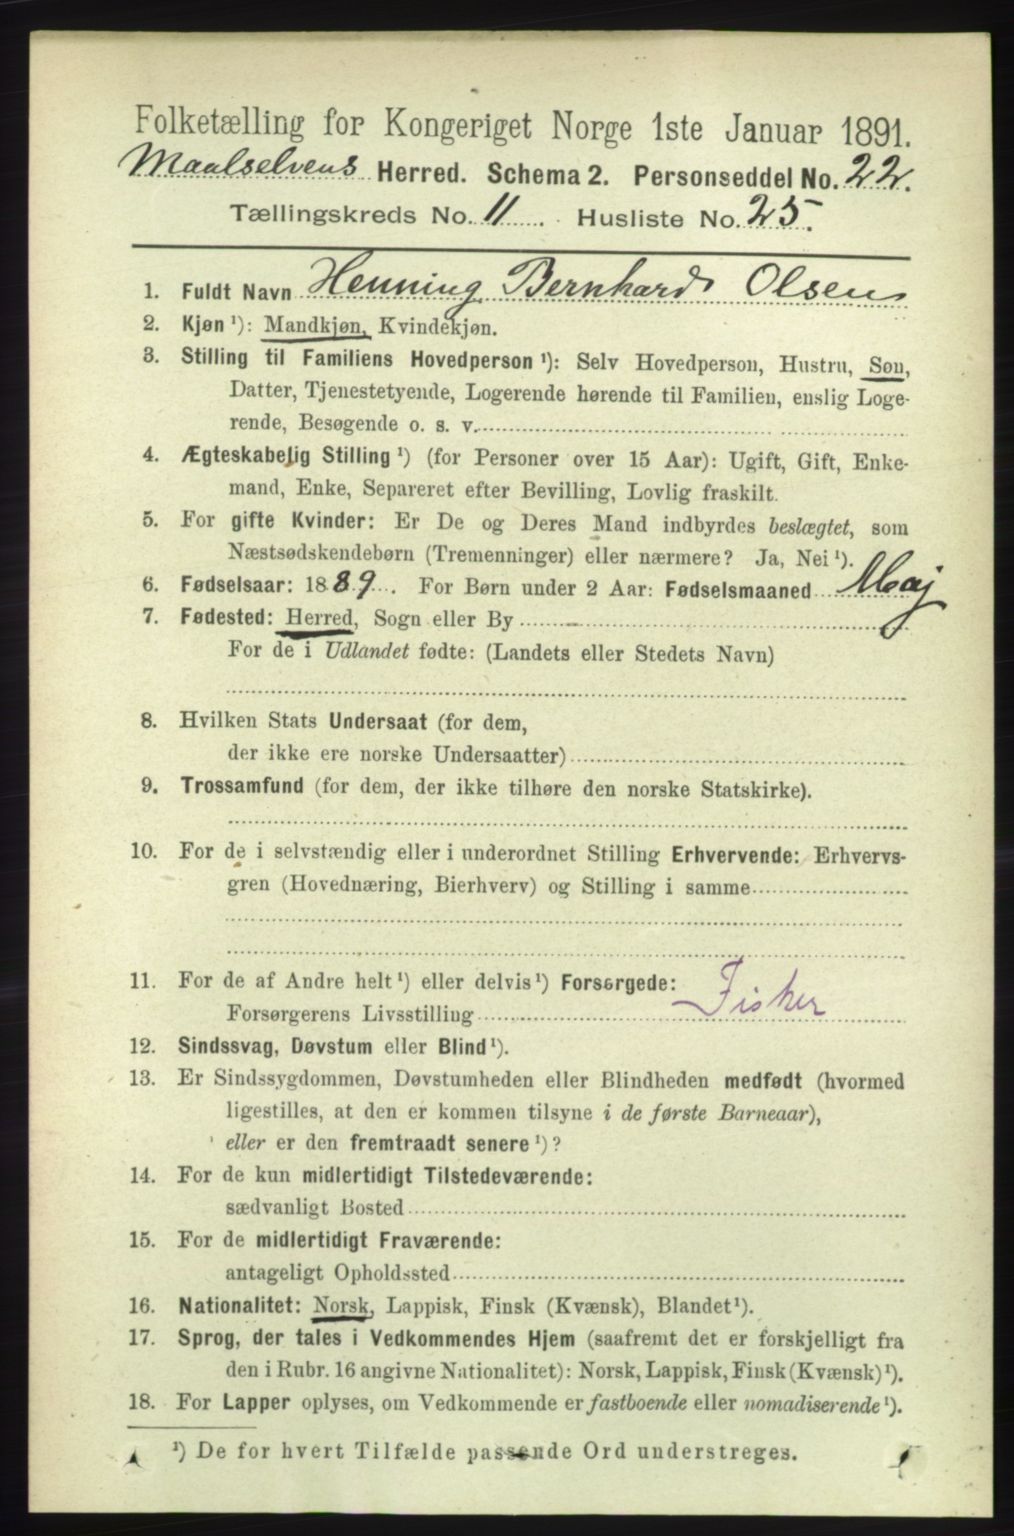 Folketælling for Kongeriget Norge 1ste Januar 1891.
Maalselvens Herred. Schema 2. Personseddel No. 22.
Tællingskreds No. 11. Husliste No. 25.
1. Fuldt Navn Henning Bernhard Olsen
2. Kjøn ¹): Mandkjøn, Kvindekjøn.
3. Stilling til Familiens Hovedperson ¹): Selv Hovedperson, Hustru, Søn,
Datter, Tjenestetyende, Logerende hørende til Familien, enslig Loge-
rende, Besøgende o. s. v.
4. Ægteskabelig Stilling ¹) (for Personer over 15 Aar): Ugift, Gift, Enke-
mand, Enke, Separeret efter Bevilling, Lovlig fraskilt.
5. For gifte Kvinder: Er De og Deres Mand indbyrdes beslægtet, som
Næstsødskendebørn (Tremenninger) eller nærmere? Ja, Nei ¹).
6. Fødselsaar: 1889. For Børn under 2 Aar: Fødselsmaaned Maj
7. Fødested: Herred, Sogn eller By
For de i Udlandet fødte: (Landets eller Stedets Navn)
8. Hvilken Stats Undersaat (for dem,
der ikke ere norske Undersaatter)
9. Trossamfund (for dem, der ikke tilhøre den norske Statskirke).
10. For de i selvstændig eller i underordnet Stilling Erhvervende: Erhvervs-
gren (Hovednæring, Bierhverv) og Stilling i samme
11. For de af Andre helt ¹) eller delvis ¹) Forsørgede:
Forsørgerens Livsstilling Fisker
12. Sindssvag, Døvstum eller Blind ¹).
13. Er Sindssygdommen, Døvstumheden eller Blindheden medfødt (hvormed
ligestilles, at den er kommen tilsyne i de første Barneaar),
eller er den fremtraadt senere ¹)?
14. For de kun midlertidigt Tilstedeværende:
sædvanligt Bosted
15. For de midlertidigt Fraværende:
antageligt Opholdssted
16. Nationalitet: Norsk, Lappisk, Finsk (Kvænsk), Blandet ¹).
17. Sprog, der tales i Vedkommendes Hjem (saafremt det er forskjelligt fra
den i Rubr. 16 angivne Nationalitet): Norsk, Lappisk, Finsk (Kvænsk) ¹).
18. For Lapper oplyses, om Vedkommende er fastboende eller nomadiserende ¹).
¹) De for hvert Tilfælde passende Ord understreges.